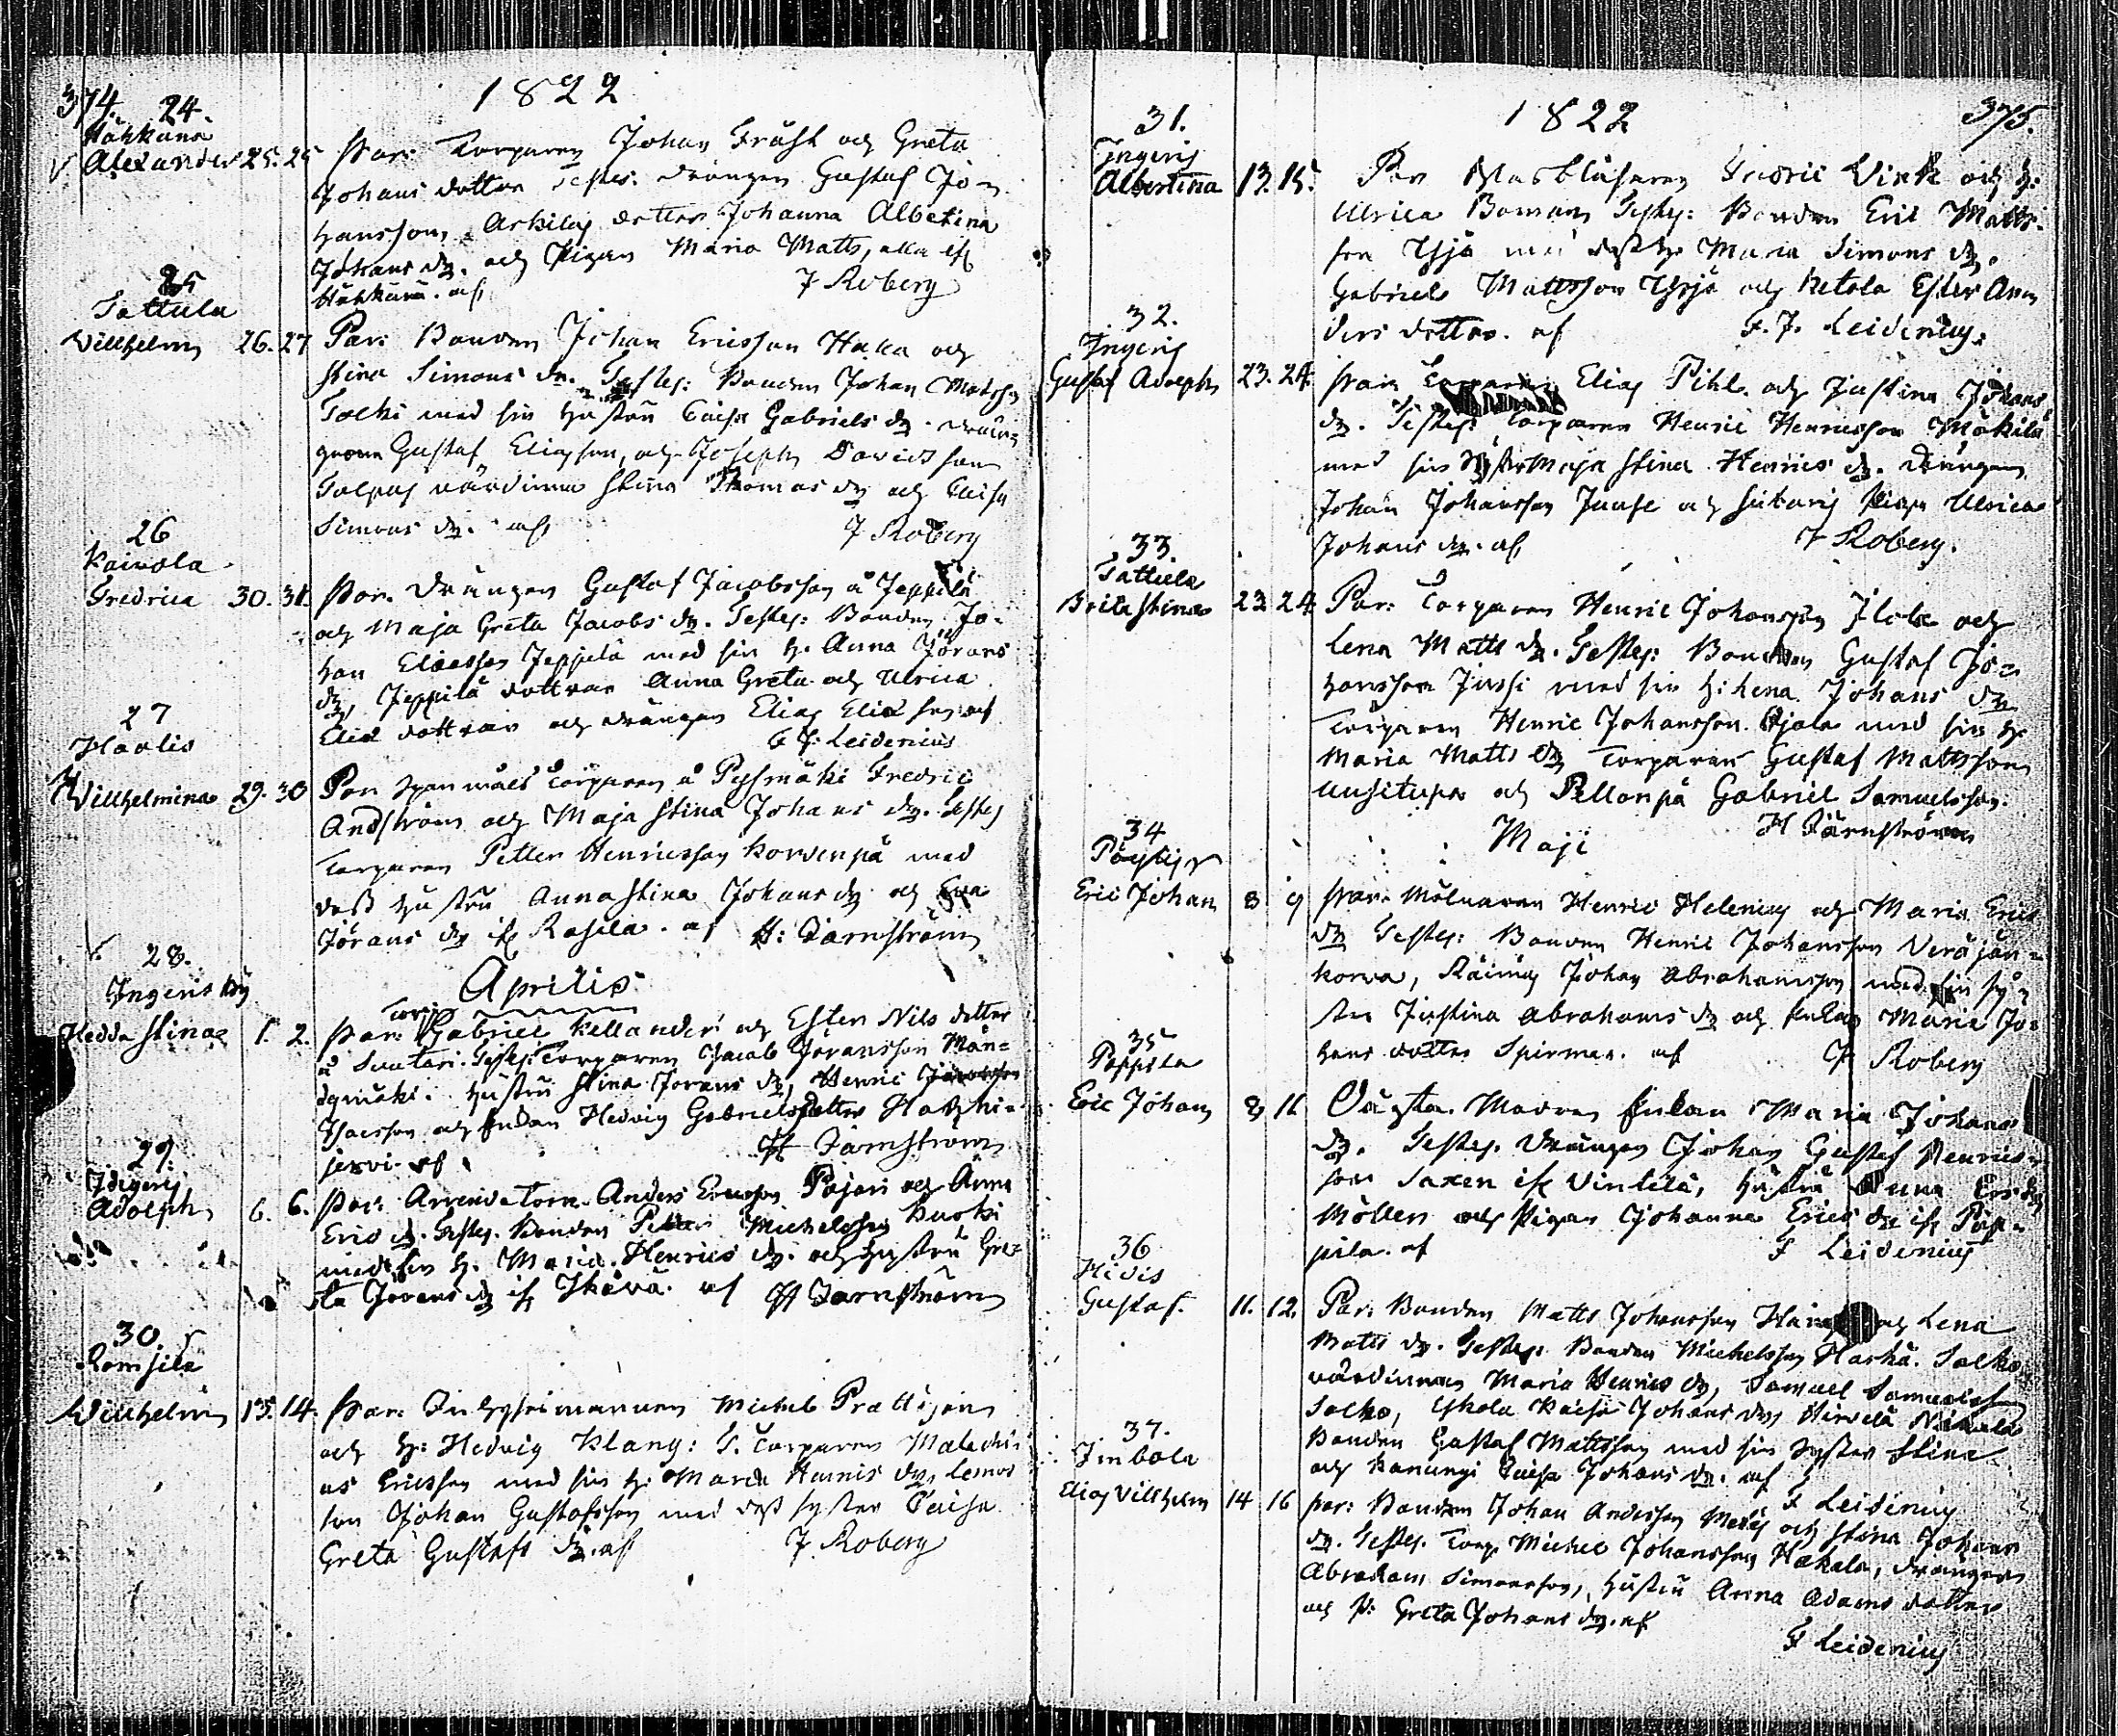 374.
1822
24.
Håhkana
Alexander 25. 25 Par: Torparen Johan Fräsk och Greta
Johans dotter Testes: Drängen Gustaf Jo-
hansson, Arkilas dotter Johanna Albetina
Johans dr. och Pigan Maria Matts, alla ifr
Håhkana. af J Roberg
25
Tattula
Willhelm 26. 27 Par: Bonden Johan Ericsson Haka och
Stina Simons dr. Testes: Bonden Johan Matss.
Talki med sin hustru Caisa Gabriels dr. drän-
garne Gustaf Eliasson, och Joseph Davidsson
värdinna Stina Thomas dr och Caisa
Simons dr. af J Roberg
26
Koivola
Fredrica 30. 31. Par. Drängen Gustaf Jacobsson å Jeppilä
och Maja Greta Jacobs dr. Testes: Bonden Jo-
han Eliasson Jeppilä med sin h. Anna Jörans
dr, Jeppilä dottrar Anna Greta och Ulrica
Eliæ dottrar och drängen Elias Eliæ son af
F: Leidenius
27
Havlis
Willhelmina 29. 30 Par Torparen å Pysmäki Fredric
Andström och Maja Stina Johans dr. Testes
Torparen Petter Henricsson Korvenpä med
dess hustru Anna Stina Johans dr och Eva
Jörans dr ifr Rasila. af H: Järnström
Aprilis
28.
Ingeris by
Hedda Stina 1. 2. Par: Torp. Gabriel Kellander och Ester Nils dotter
å Suutari. Testes: Torparen Jacob Jöransson Män-
dymäki. hustru Stina Jörans dr, Henric
Isacsson och Enkan Hedvig Gabriels dotter Hauhi-
jervi. af H Järnström
29.
Ingeris
Adolph 6. 6. Par: Arrendatorn Anders Ericsson Pajari och Anna
Erics dr. Testes. Bonden Petter Michelsson Kuoki
med sin h. Maria Henrics dr. och hustru Gre-
ta Jörans dr ifr Ihävä. af H Järnström
30.
Romsila
Willhelm 13. 14. Par: Michel Prattsjon
och h: Hedvig Klang: T. Torparen Malachi-
as Ericsson med sin h. Maria Henrics dr,
son Johan Gustafsson med dess syster Caisa
Greta Gustafs dr. af J. Roberg
1822
375.
31.
Ingeris
Albertina 13. 15. Par Glasblåsaren Fredric Wink och h:
Ulrica Boman Testes: Bonden Eric Matts-
son Yhjä med dess h. Maria Simons dr.
Gabriel Mattsson Yhjä och Ketola Ester An-
ders dotter. af F. J. Leidenius.
32.
Ingeris
Gustaf Adolph 23. 24. Par: Torparen Elias Pihl och Justina Johans
dr. Testes: Torparen Henric Henricsson Mäkilä
med sin h Maja Stina Henrics dr. Drängen
Johan Johansson Juuse och Pigan Ulrica
Johans dr. af J Roberg.
33.
Tattula
Brita Stina 23. 24. Par: Torparen Henric Johansson Ilola och
Lena Matts dr. Testes: Bonden Gustaf Jo-
hansson Jussi med sin h: Lena Johans dr
Torparen Henric Johansson Ojala med sin h.
Maria Matts dr Torparen Gustaf Mattsson
Uusitupa och Pellonpä Gabriel Samuelsson.
H Järnström
Maji
34
Eric Johan 8 9 Par: Mölnaren Henric Helenius och Maria Erics
dr Testes: Bonden Henric Johansson Veräjän-
korva, Johan Abrahamsson med sin sy-
ster Justina Abrahams dr och Enkan Maria Jo-
hans dotter Spirman. af J. Roberg
35
Pappila
Eric Johan 8 16 Oägta. Modren Enkan Maria Johans
dr. Testes. Drängen Johan Gustaf Henrics-
son Saxen ifr Vintilä, hustru Anna Erics dr
Möller och Pigan Johanna Erics dr ifr Pap-
pila. af F Leidenius
36
Hidis
Gustaf. 11. 12. Par: Bonden Matts Johansson och Lena
Matts dr. Testes: Bonden Michelsson Harha. Salko
värdinnan Maria Henrics dr, Samuel Samuelsson
Salko, Eskola Kaisa Johans dr, Hirvelä Nikula
Bonden Gustaf Mattsson med sin syster Stina
och Kanungi Caisa Johans dr. af F Leidenius
37.
Jimbola
Elias Villhelm 14 16 Par: Bonden Johan Andersson och Stina Johans
dr. Testes. Torp. Michel Johansson Hakala, Drängen
Abraham Simonsson, hustru Anna Adams dotter
och P: Greta Johans dr. af
F Leidenius